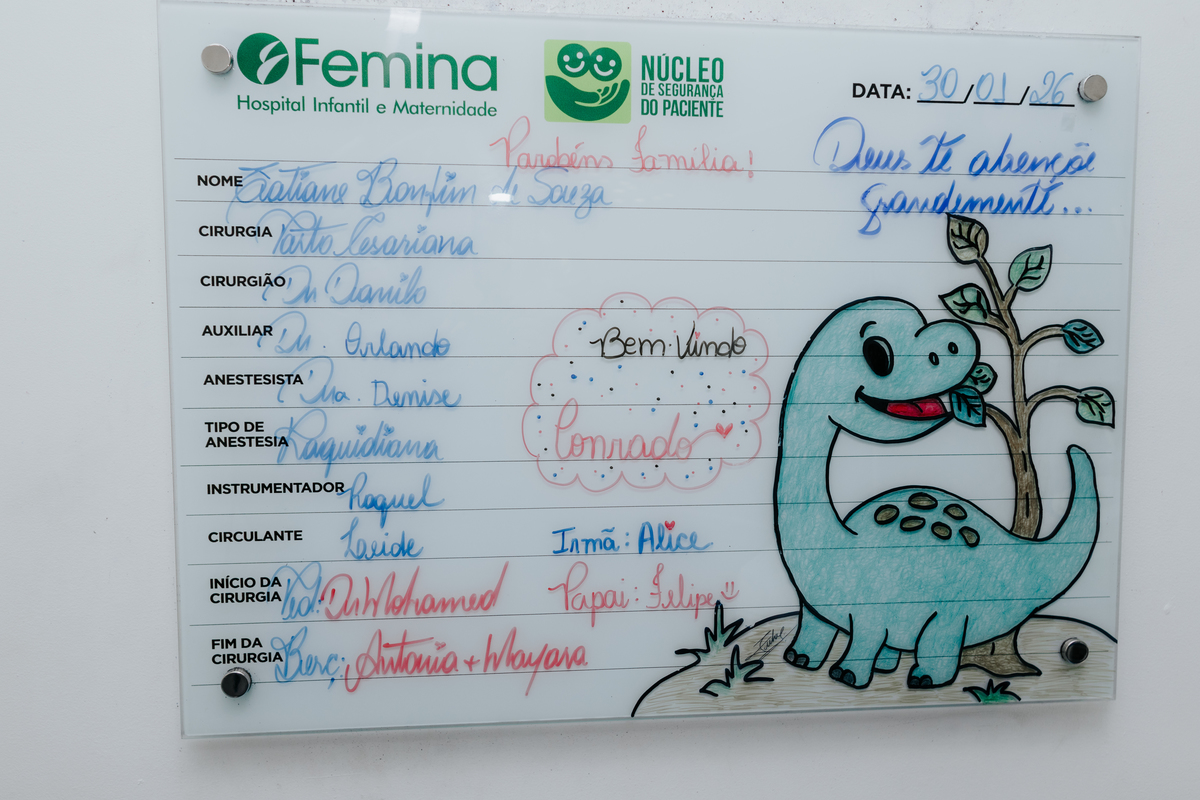 Femina
Hospital Infantil e Maternidade
NÚCLEO
DE SEGURANÇA
DO PACIENTE
DATA: 30/01/26
Parabéns Família!
Deus te abençõe
grandemente...
NOME Tatiane Bonfim de Souza
CIRURGIA Parto Cesariana
CIRURGIÃO Dr Danilo
AUXILIAR Dr. Orlando
Bem-Vindo
ANESTESISTA Dra. Denise
TIPO DE
ANESTESIA Raquidiana
Conrado
INSTRUMENTADOR Raquel
CIRCULANTE
Irmã: Alice
INÍCIO DA
CIRURGIA Ped: Dr Mohamed
Papai: Felipe
FIM DA
CIRURGIA Berç: Antonia + Mayara